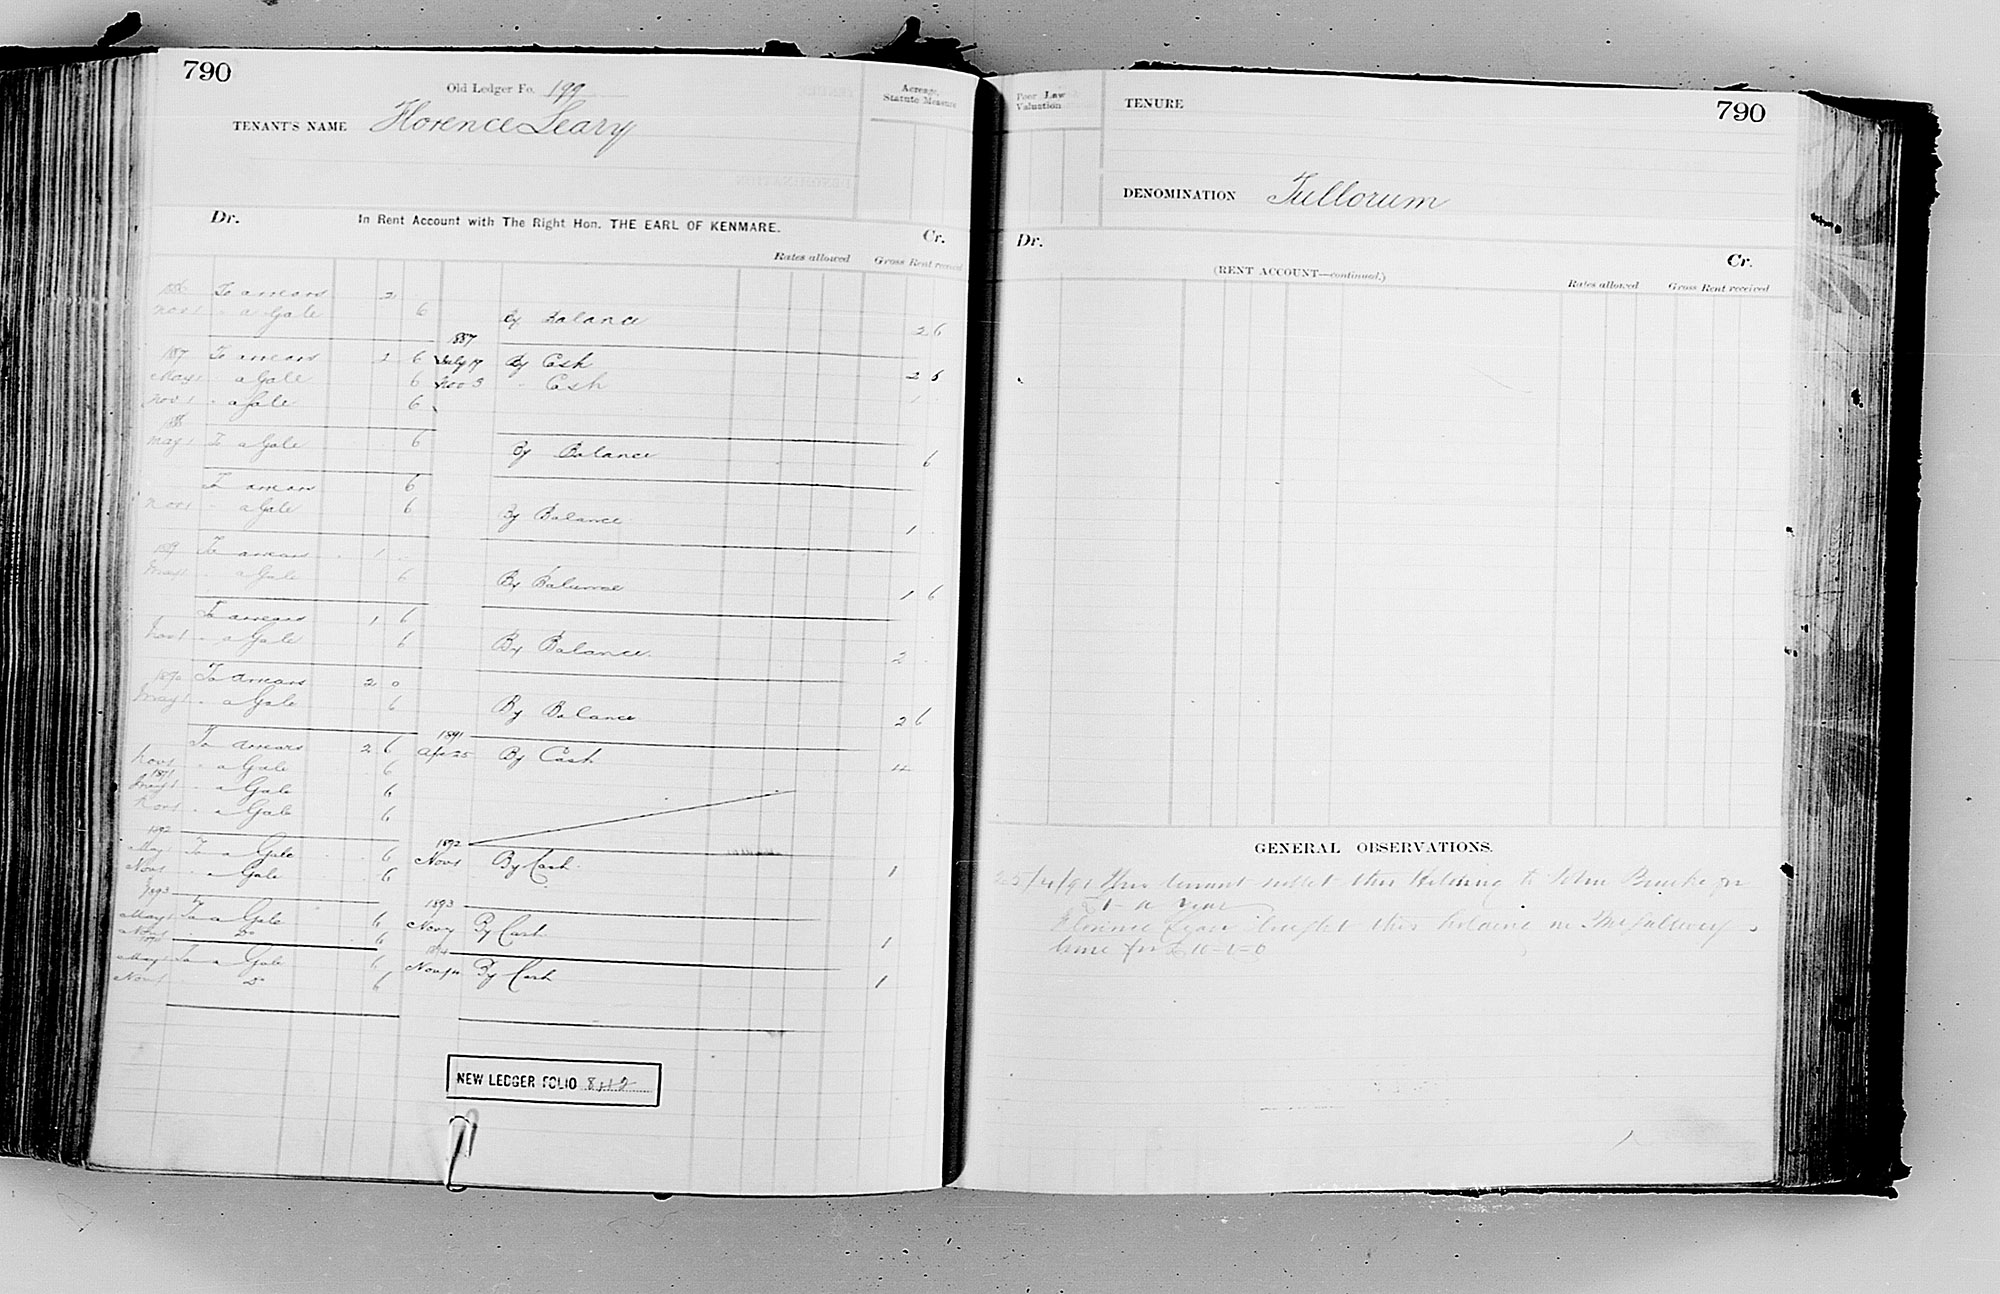 790
Old Ledger Fo. 199
TENANT'S NAME Florence Leary
Acreage, Statute Measure
Dr. In Rent Account with The Right Hon. THE EARL OF KENMARE. Cr.
Rates allowed Gross Rent received
To arrears 2
Nov 1 " a Gale 6 By Balance 2 6
1887 1887
To arrears 2 6 July 19 By Cash 2 6
May 1 " a Gale 6 Nov 3 " Cash 1
Nov 1 " a Gale 6
1888
May 1 To a Gale 6 By Balance 6
To arrears 6
Nov 1 " a Gale 6 By Balance 1
1889 To arrears 1
May 1 " a Gale 6 By Balance 1 6
To arrears 1 6
Nov 1 " a Gale 6 By Balance 2
1890 To arrears 2 0
May 1 " a Gale 6 By Balance 2 6
1891
To arrears 2 6 Apr 25 By Cash 4
Nov 1 " a Gale 6
1891
May 1 " a Gale 6
Nov 1 " a Gale 6
1892 1892
May 1 To a Gale 6 Nov 1 By Cash 1
Nov 1 " a Gale 6
1893 1893
May 1 To a Gale 6 Nov By Cash 1
Nov 1 Do 6
1894 1894
May 1 To a Gale 6 Nov By Cash 1
Nov 1 Do 6
NEW LEDGER FOLIO 842
Poor Law Valuation
TENURE
790
DENOMINATION Tullorum
Dr. Cr.
(RENT ACCOUNT—continued.)
Rates allowed Gross Rent received
GENERAL OBSERVATIONS.
25/4/91 This tenant sublet this Holding to John Bourke for
£1- a Year
Florence Leary bought this holding in
time for £10-0-0